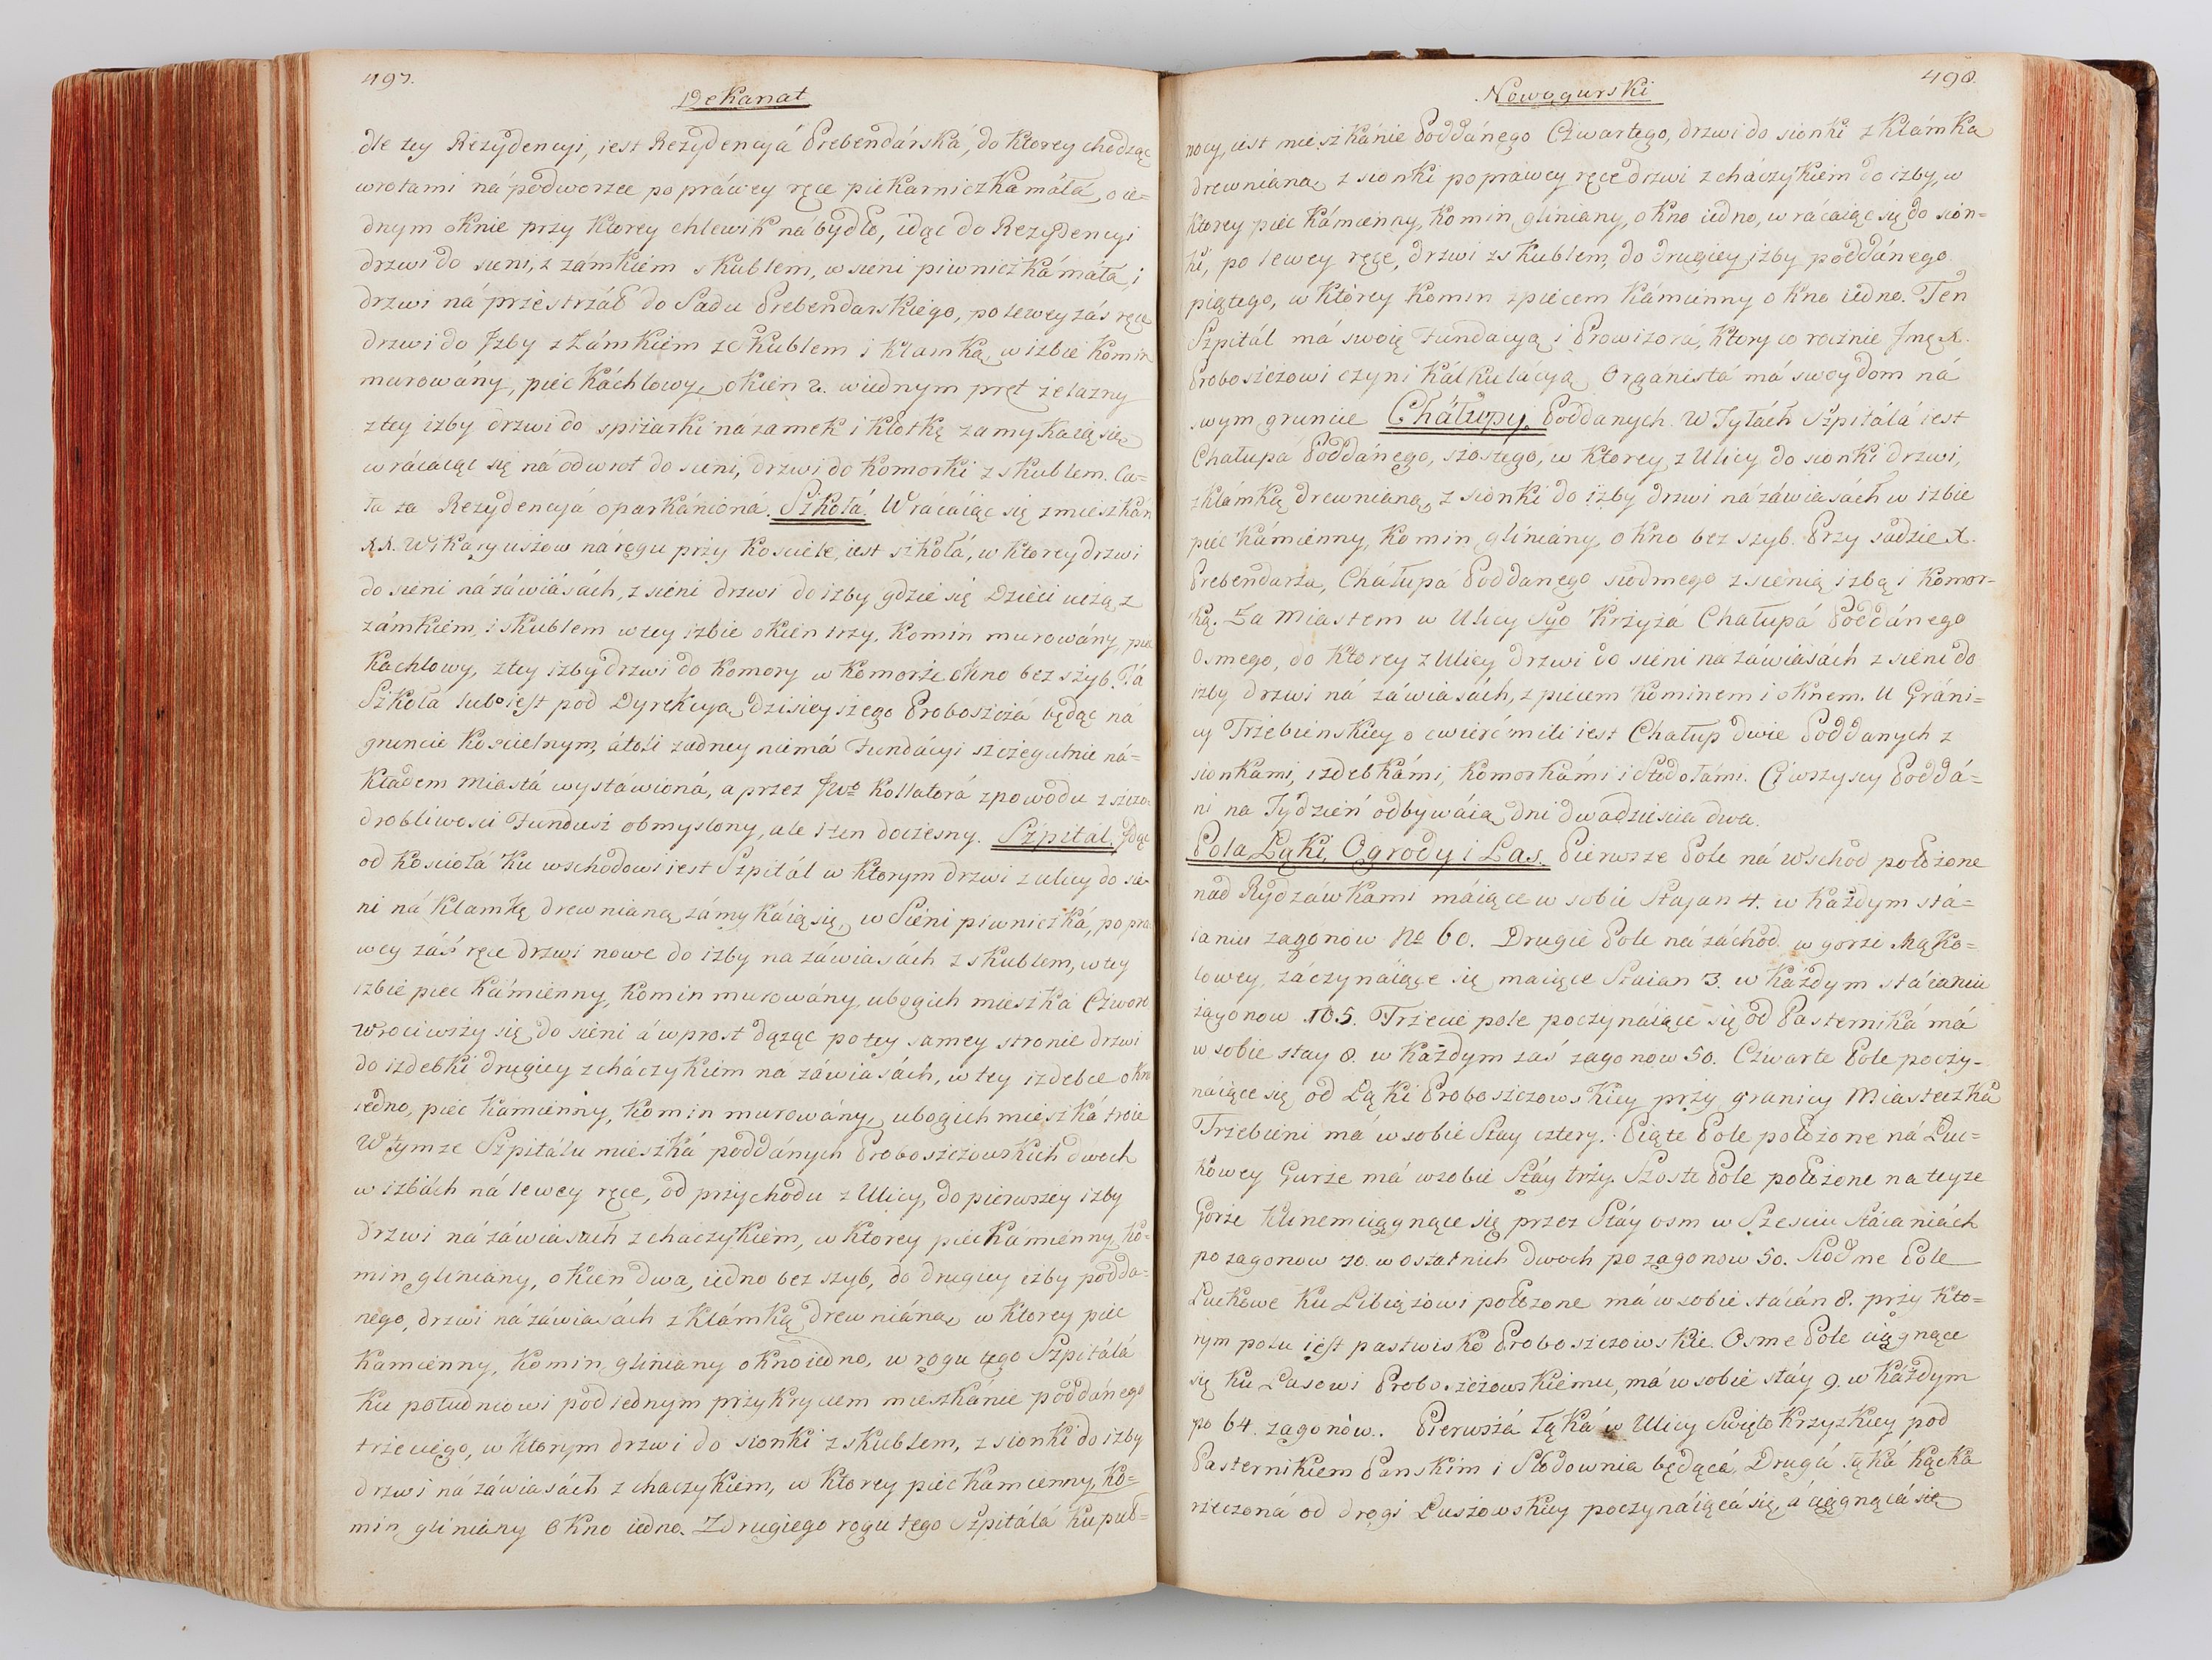 497.
Dekanat
dle tey Rezydencyi, iest Rezydencyá Prebendárská, do ktorey chodząc
wrotami ná podworzec po práwey ręce piekarniczka máła, o ie=
dnym oknie przy ktorey chlewik ná bydło, idąc do Rezydencyi
drzwi do sieni, z zámkiem skublem, w sieni piwniczká máła, i
drzwi ná przestrzáł do Sadu Prebendarskiego, po lewey záś ręce
drzwi do Jzby z zámkiem ze skublem i klamką, w izbie komin
murowány, piec káchlowy, okien 2. w iednym pręt żelazny
z tey izby drzwi do spiżarki na zamek i klotkę zamykaią się
wrácáiąc się ná odwrot do sieni, drzwi do komorki z skublem. Ca=
ła ta Rezydencyá oparkánioná. Szkołá. Wrácáiąc się z mieszkán
XX. Wikaryuszow ná rogu przy kosciele, iest szkołá, w ktorey drzwi
do sieni ná záwiásách, z sieni drzwi do izby gdzie się Dzieci uczą, z
zámkiem, i skublem w tey izbie okien trzy, komin murowány, piec
kachlowy, z tey izby drzwi do komory w komorze okno bez szyb. Tá
Szkoła lubo iest pod Dyrekcyą dzisieyszego Proboszczá będąc ná
gruncie koscielnym, átoli zadney niemá Fundácyi szczegulnie ná=
kładem Miastá wystáwioná, a przez JWo Kollatorá z powodu z szczo
drobliwosci Fundusz obmyslony, ale i ten doczesny. Szpitál. Jdąc
od Kosciołá ku wschodowi iest Szpitál w ktorym drzwi z ulicy do sie
ni ná klamkę drewnianą zámykáią się, w Sieni piwniczká, po pra
wey záś ręce drzwi nowe do izby na záwiasách z skublem, w tey
izbie piec kámienny, komin murowány, ubogich mieszka Czworo
Wrociwszy się do sieni á wprost dążąc po tey samey stronie drzwi
do izdebki drugiey z cháczykiem na záwiasách, w tey izdebce okno
iedno, piec kámienny, komin murowány, ubogich mieszká troie
W tymze Szpitálu mieszká poddánych Proboszczowskich dwoch
w izbách ná lewey ręce, od przychodu z Ulicy, do pierwszey izby
drzwi ná záwiasach z cháczykiem, w ktorey piec kámienny, ko=
min gliniány, okien dwa, iedno bez szyb, do drugiey izby podda=
nego, drzwi ná záwiasách z klámką drewnianą, w ktorey piec
kamienny, komin gliniany okno iedno, w rogu tego Szpitálá
ku południowi pod iednym przykryciem mieszkánie poddánego
trzeciego, w ktorym drzwi do sionki z skublem, z sionki do izby
drzwi ná záwiasách z chaczykiem, w ktorey piec kamienny, ko=
min gliniány okno iedno. Z drugiego rogu tego Szpitálá ku puł=
498.
Nowogurski
nocy, iest mieszkánie Poddánego Czwartego, drzwi do sionki z klámką
drewnianą, z sionki po práwey ręce drzwi z cháczykiem do izby, w
ktorey piec kámienny, komin gliniany, okno iedno, wrácáiąc się do sion=
ki, po lewey ręce, drzwi z skublem, do drugiey izby poddánego
piątego, w ktorey komin z piecem kámienny okno iedno. Ten
Szpitál má swoię Fundacyą i Prowizorá, ktory co rocznie Jmę X.
Proboszczowi czyni kálkulacyą. Orgánistá má swoy dom ná
swym gruncie Cháłupy. Poddanych. W Tyłách Szpitálá iest
Chałupá Poddánego, szostego, w ktorey z Ulicy do sionki drzwi,
z klámką drewnianą, z sionki do izby drzwi ná záwiasách w izbie
piec kámienny, komin gliniány, okno bez szyb. Przy sadzie X.
Prebendarza, Chałupá Poddanego siodmego z sienią izbą i komor-
ką. Za Miastem w Ulicy Sgo Krzyżá Chałupá Poddánego
osmego, do ktorey z Ulicy drzwi do sieni na záwiásách z sieni do
izby drzwi ná záwiasách, z piecem kominem i oknem. U Gráni=
cy Trzebienskiey o cwierć mili iest Chałup dwie Poddanych z
sionkami, izdebkámi, komorkámi i Stodołámi. Ci wszyscy Poddá=
ni na Tydzień odbywáią dni dwadziescia dwa.
Pola Łąki, Ogrody i Las. Pierwsze Pole ná wschod położone
nad Rydzáwkami máiące w sobie Stajan 4. w każdym stá=
ianiu zagonow No 60. Drugie Pole ná záchod w gorze Mąko=
lowey, záczynáiące się maiące Staian 3. w każdym stáianiu
zagonow 105. Trzecie pole poczynáiące się od Pasterniká má
w sobie stay 8. w każdym zaś zagonow 50. Czwarte Pole poczy-
náiące się od Łąki Proboszczowskiey przy granicy Miasteczka
Trzebini má w sobie Stay cztery. Piąte Pole położone ná Luc=
kowey Gurze má w sobie Stáy trzy. Szoste Pole położone na teyże
Gorze klinem ciągnące się przez Stáy osm w Szesciu Stáianiách
po zagonow 70. w ostatnich dwoch po zagonow 50. Siodme Pole
Luckowe ku Libiążowi położone má w sobie stáián 8. przy kto=
rym polu iest pastwisko Proboszczowskie. Osme Pole ciągnące
się ku Lasowi Proboszczowskiemu, má w sobie stáy 9. w káżdym
po 64. zagonów. Pierwszá łąká w Ulicy Swięto Krzyzkiey pod
Pasternikiem Panskim i Słodownią będącá, Drugá łąká Kącka
rzeczoná od drogi Luszowskiey poczynáiącá się, á ciągnącá się